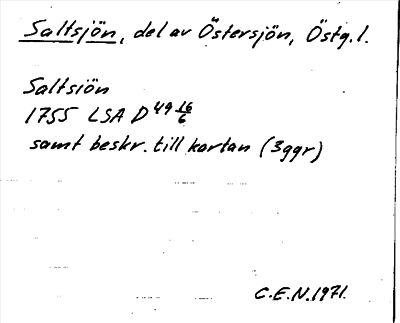 Saltsjön, del av Östersjön, Östg.l.
Saltsiön
1755 LSA D 49 16/6
samt beskr. till kartan (3ggr)
C.E.N. 1971.